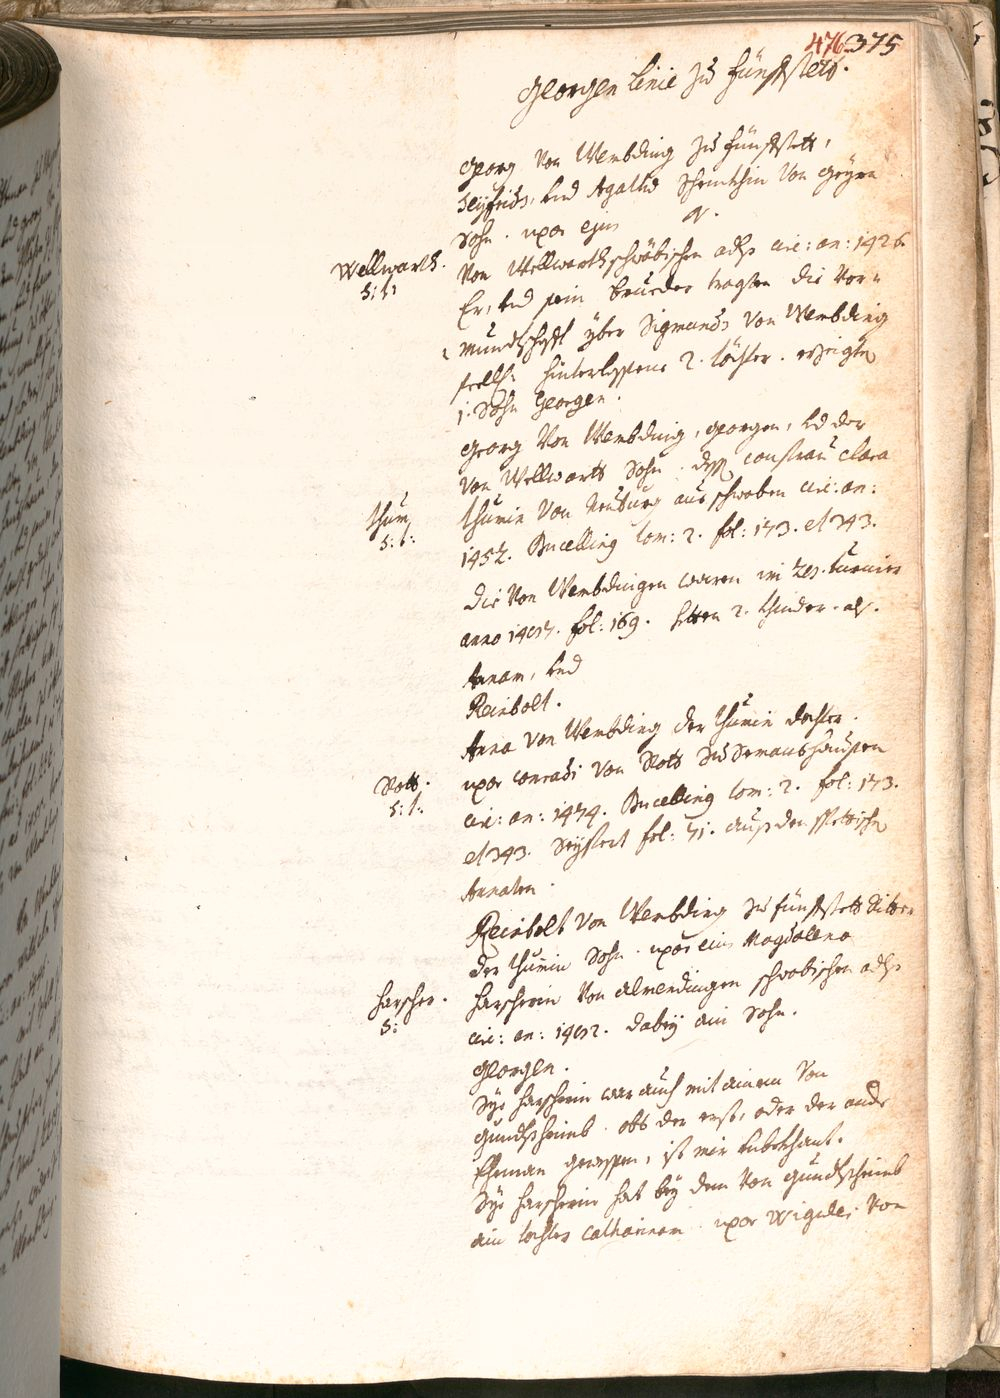 476 375
Georgen Linie zu Fünfstett.
Georg Von Wembding zu Fünfstett,
Seyfrids, und Agatha Schenkhin Von Geyrn
Sohn. uxor ejus N.
Wellwarth.
S: f:
Von Wellwarth schwäbischen adls circ: an: 1426
Er, und sein Bruder tragten die Vor=
=mundschafft über Sigmunds Von Wembding
hinterlassene 2. töchter. erzeigte
1. Sohn Georgen.
Georg Von Wembding, Georgen, und der
Von Wellwarth Sohn. dess Clara
Thum
S: f:
Thumin Von Neuburg aus schwaben circ: an:
1452. Bucelling tom: 2. fol: 173. et 343.
Die Von Wembdingen waren im 28. turnier
anno fol: 169. hetten 2. Khinder. als.
Annam, und
Reinbolt.
Anna Von Wembding der Thumin dochter.
Rott.
S: f:
uxor Conradi Von Rott zu
circ: an: 1474. Bucelling tom: 2. fol: 173.
et 343. Seyfert fol: 71. auss den
Annalen.
Reinbolt Von Wembding zu Fünfstett Ritter
der Thumin Sohn. uxor eius Magdalena
Harscher.
S:
Harscherin Von Almendingen schwäbischen adls
circ: an: 1492. dabey ain Sohn.
Georgen.
Dise Harscherin war auch mit ainem Von
Gundlsheimb. obs der erste, oder der ander
Eheman gewessen, ist mir unbekhant.
Dise Harscherin hat bey dem Von Gundlsheimb
ain tochter Catharinam. uxor Wigulei Von